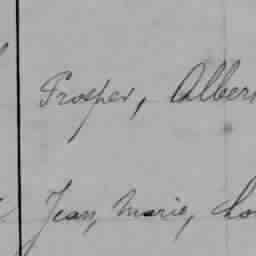 Prosper, Alber
Jean, Marie, Lo